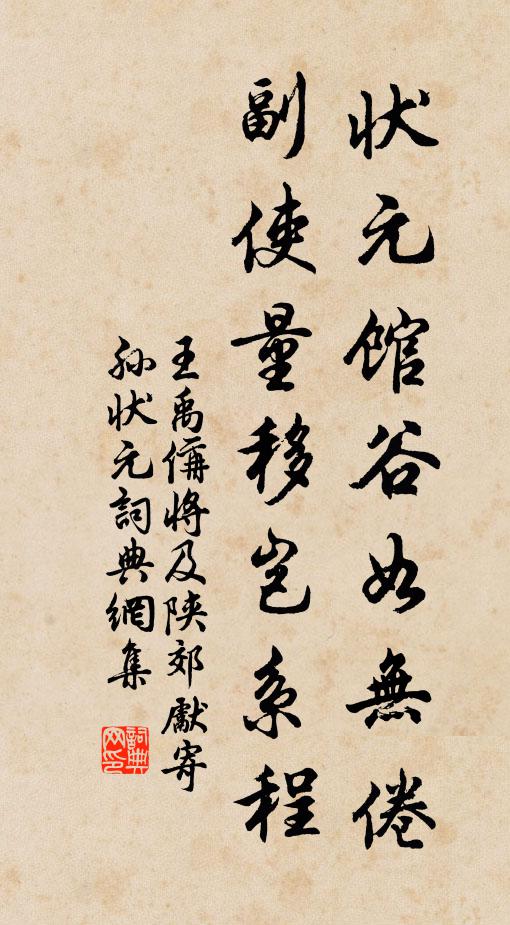 状元馆谷如無倦
副使量移岂系程
王禹偁将及陕郊獻寄
孙状元詞典網集
詞典网印